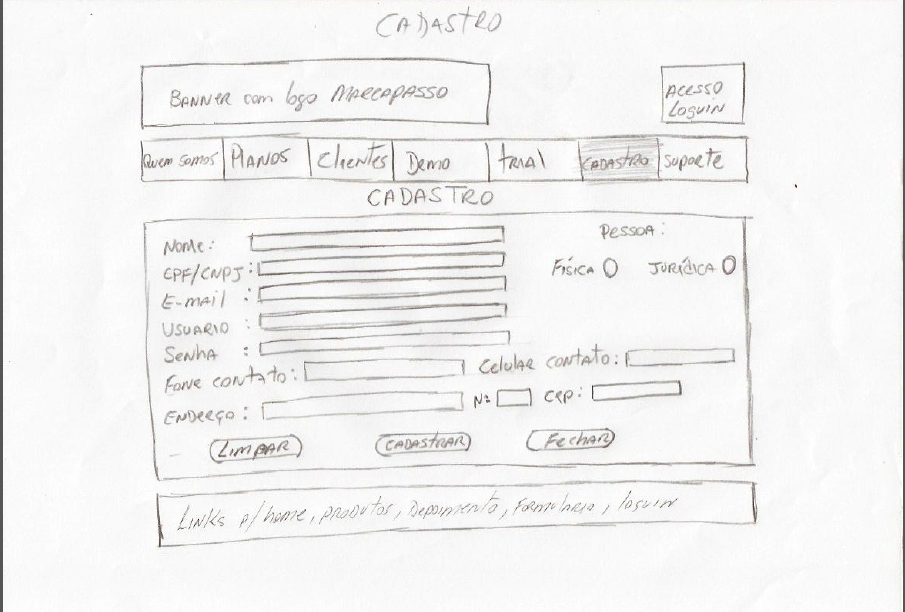 CADASTRO
BANNER com logo MARCAPASSO
ACESSO
LOGUIN
Quem somos PLANOS Clientes Demo TRIAL CADASTRO SUPORTE
CADASTRO
Nome:
PESSOA:
CPF/CNPJ:
FÍSICA JURÍDICA
E-mail :
USUARIO :
Senha :
Fone contato: Celular contato:
ENDERÇO : Nº CEP:
LIMPAR CADASTRAR Fechar
Links p/ home, produtos, Depoimento, Formulario, loguin